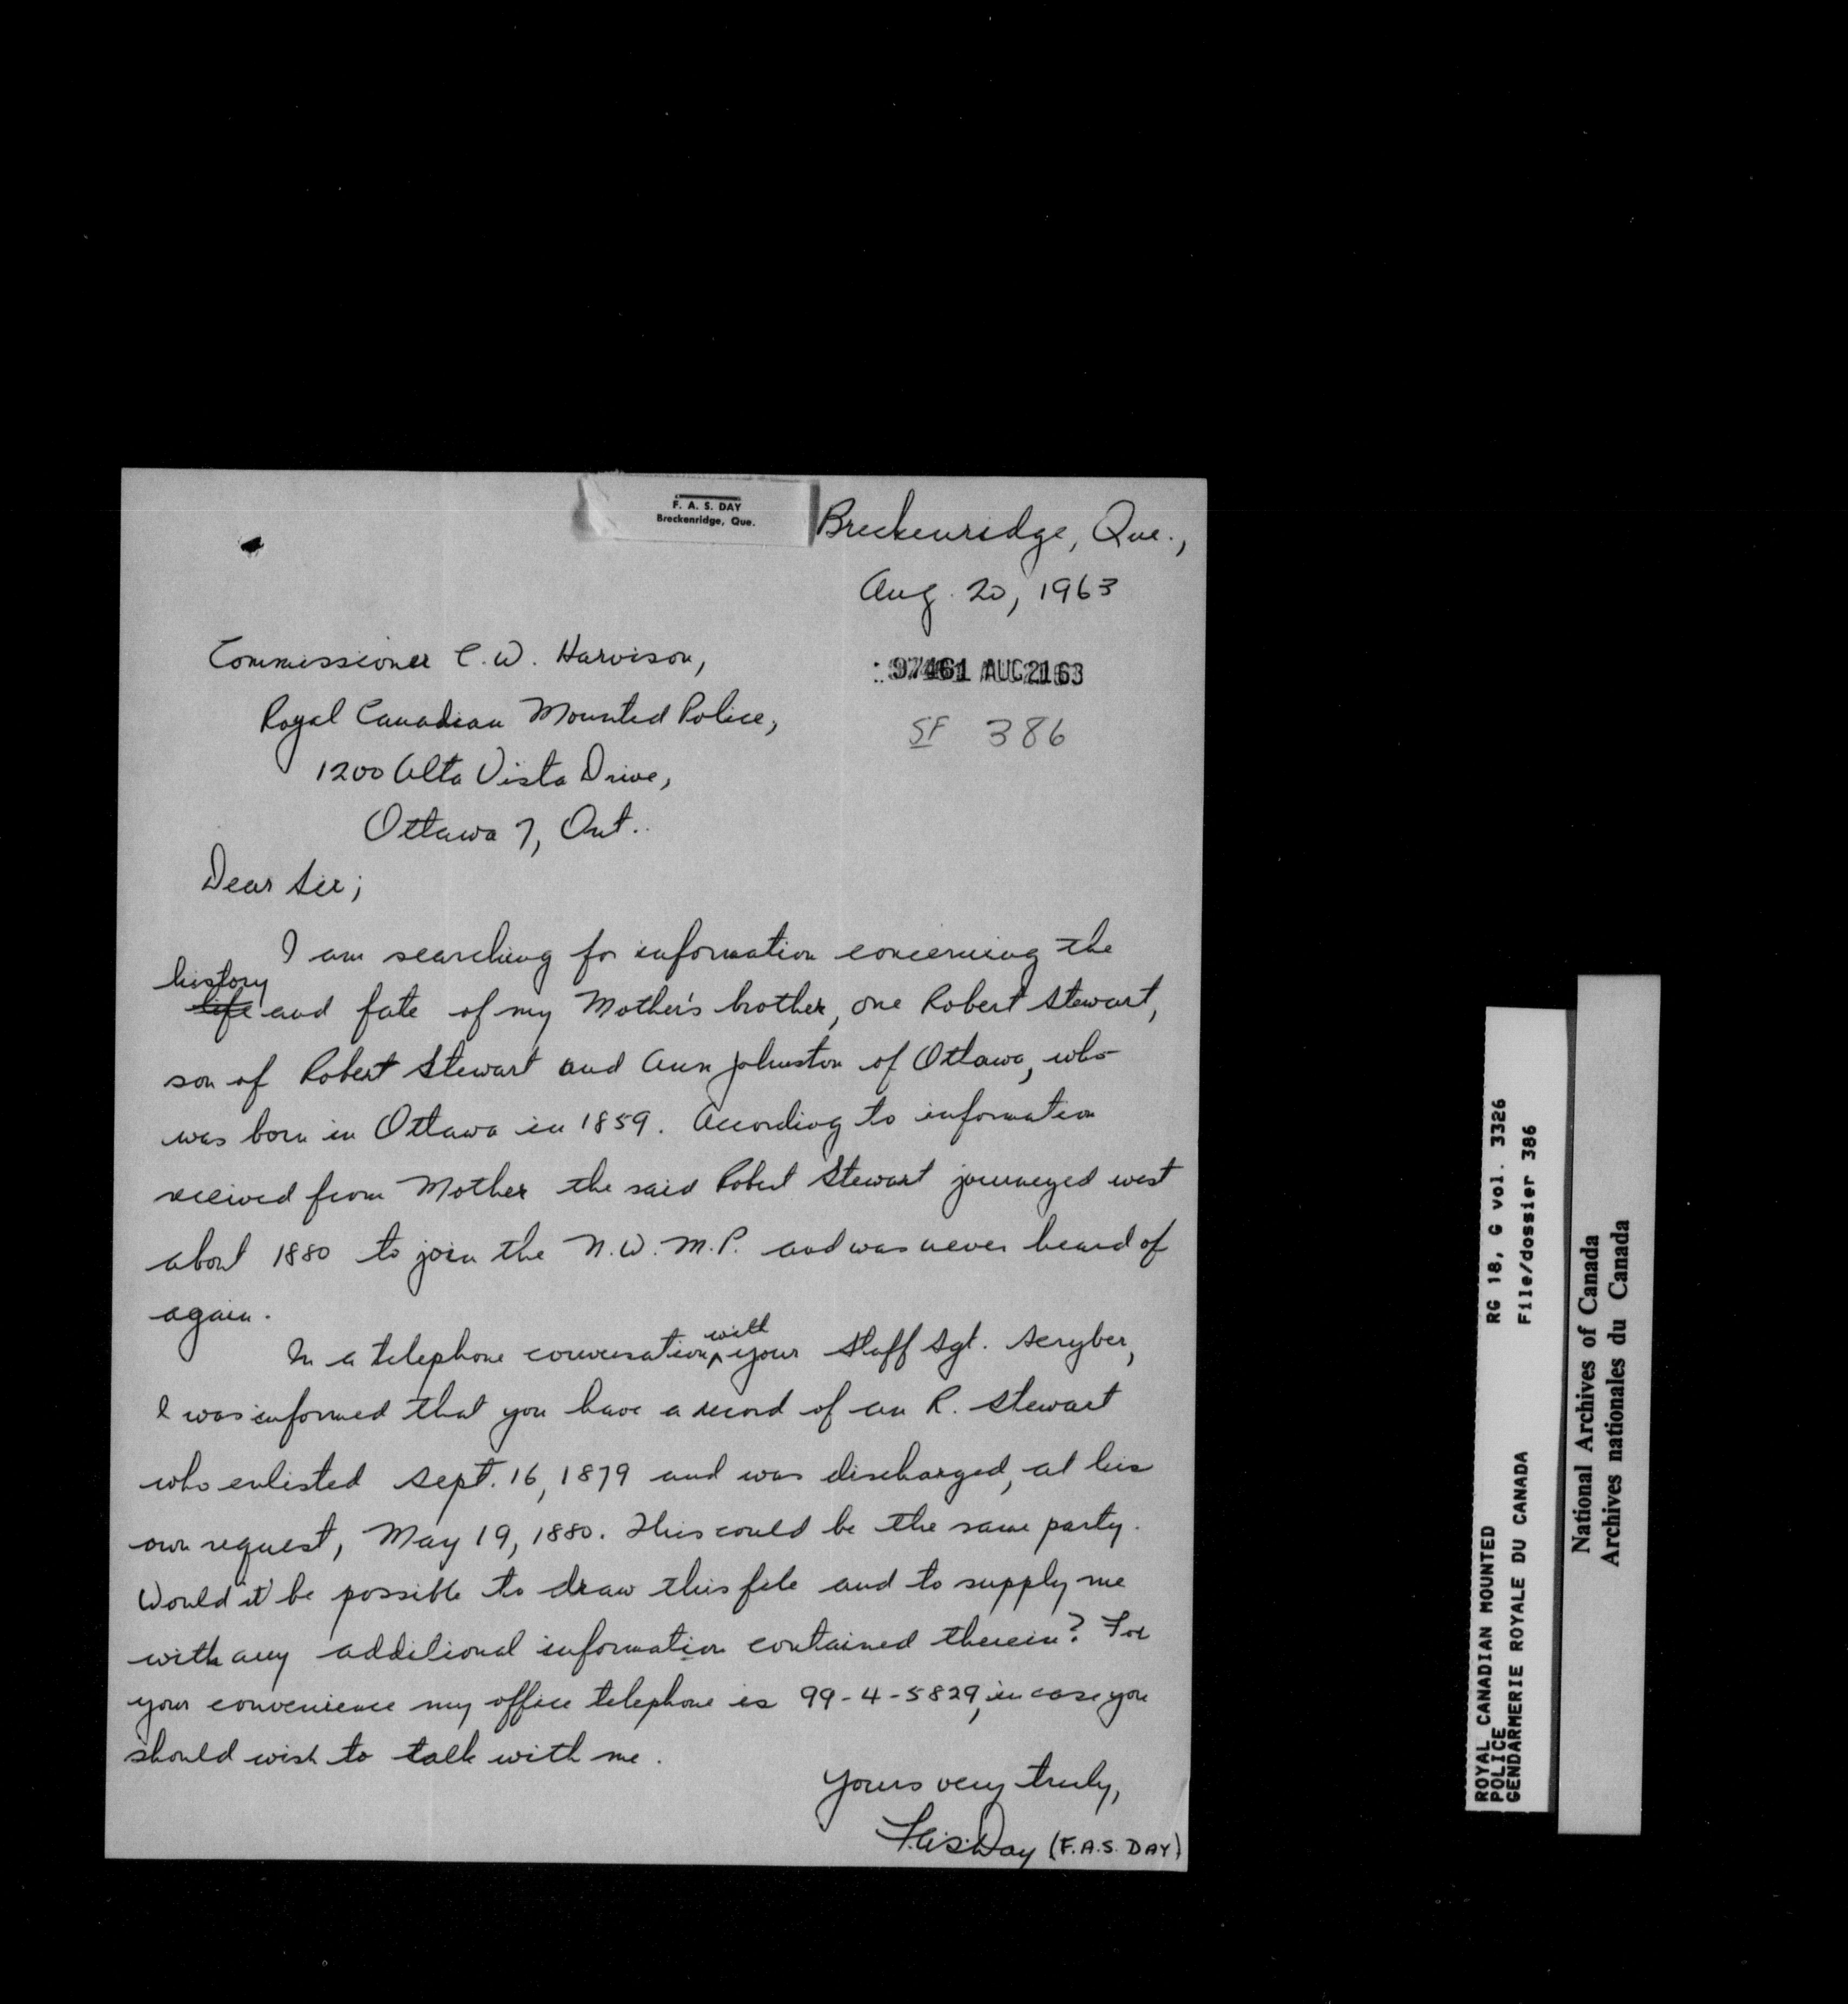 F. A. S. DAY
Breckenridge, Que.
Breckenridge, Que.,
Aug. 20, 1963
Commissioner C.W. Harvison,
Royal Canadian Mounted Police,
1200 Alta Vista Drive,
Ottawa 7, Ont..
97461 AUG 21 63
SF 386
Dear Sir;
I am searching for information concerning the
history
life and fate of my Mother's brother, one Robert Stewart,
son of Robert Stewart and Ann Johnston of Ottawa, who
was born in Ottawa in 1859. According to information
received from Mother the said Robert Stewart journeyed west
about 1880 to join the N.W.M.P. and was never heard of
again.
In a telephone conversation with your Staff Sgt. Scryber,
I was informed that you have a record of an R. Stewart
who enlisted Sept. 16, 1879 and was discharged, at his
own request, May 19, 1880. This could be the same party.
Would it be possible to draw this file and to supply me
with any additional information contained therein? For
your convenience my office telephone is 99-4-5829, in case you
should wish to talk with me.
Yours very truly,
F.A.S. Day (F.A.S. DAY)
ROYAL CANADIAN MOUNTED
POLICE
GENDARMERIE ROYALE DU CANADA
RG 18, G vol. 3326
File/dossier 386
National Archives of Canada
Archives nationales du Canada